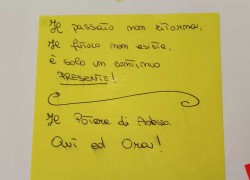 Il passato non ritorna,
Il futuro non esiste,
è solo un continuo
PRESENTE!
Il Potere di Adesso.
Qui ed Ora!